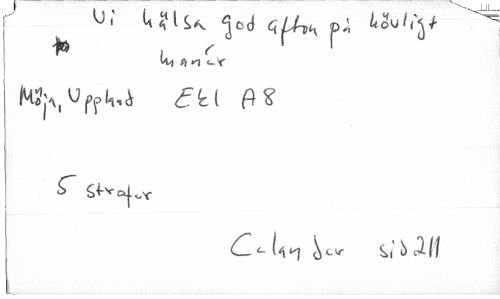 Vi hälsa god afton på hövligt
manér
Möja, Uppland EEl A8
5 strofer
Celander sid 211